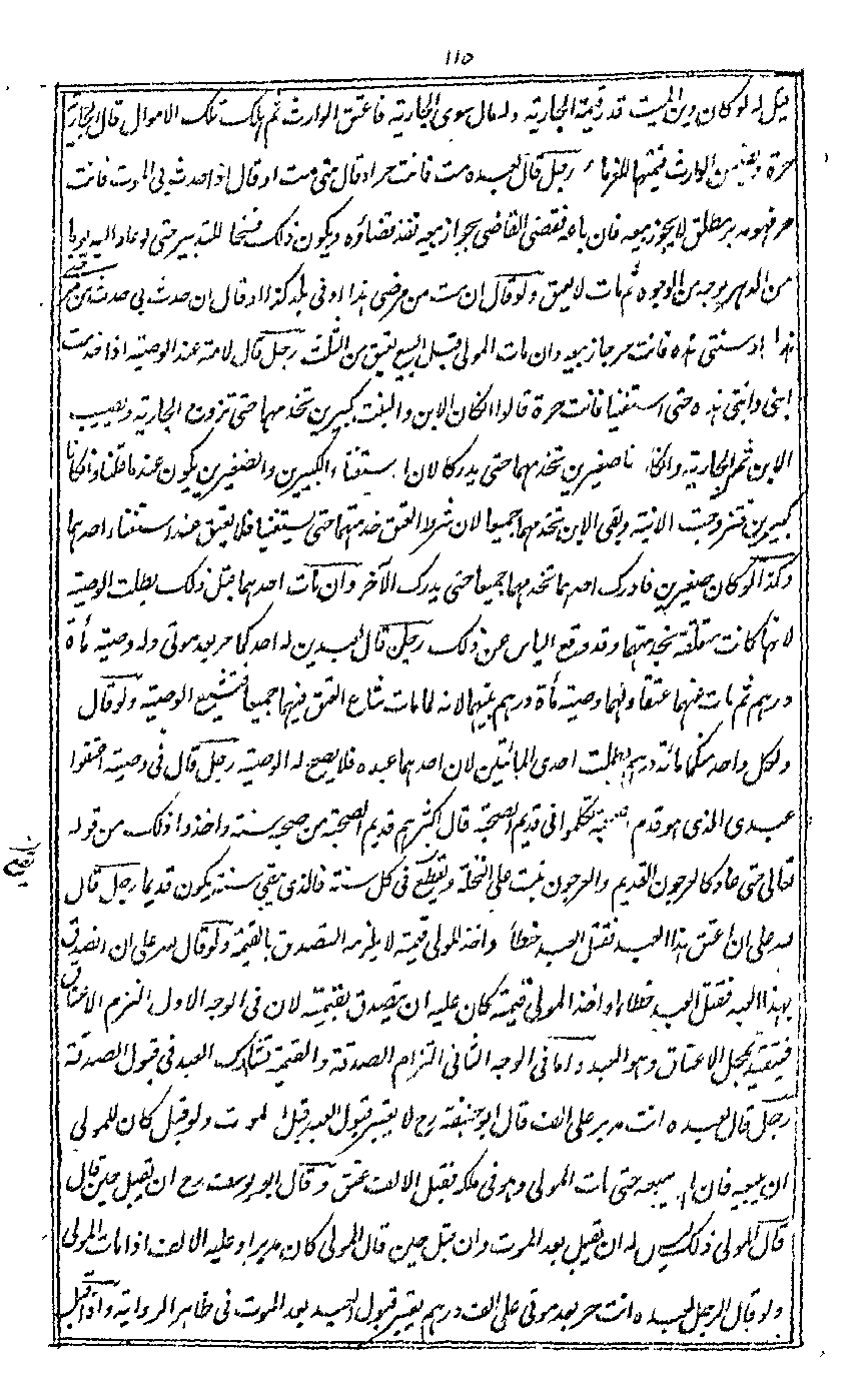 ١١٥
قيل له لو كان دين الميت قدر قيمة الجارية وله مال سوى الجارية فاعتق الوارث ثم هلك تلك الاموال قال الجارية
حرة ويضمن الوارث قيمتها للغرماء رجل قال لعبده مت فانت حر او قال متى مت او قال اذا حدث بى الموت فانت
حر فهو مدبر مطلق لا يجوز بيعه فان باعه فقضى القاضى بجواز بيعه نفذ قضاؤه ويكون ذلك فسخا للتدبير حتى لو عاد اليه يوما
من الدهر بوجه من الوجوه ثم مات لا يعتق ولو قال ان مت من مرضى هذا او فى بلد كذا او قال ان حدث بى حدث من مرضى
هذا او سنتى هذه فانت حر جاز بيعه وان مات المولى قبل البيع يعتق من الثلث رجل قال لامته عند الوصية اذا خدمت
ابنى وابنتى هذه حتى استغنيا فانت حرة قالوا ان كان الابن والبنت كبيرين تخدمهما حتى تزوج الجارية ويصيب
الابن ثمن الجارية وان كانا صغيرين تخدمهما حتى يدركا لان استغناء الكبيرين والصغيرين يكون عند ما قلنا وان كانا
كبيرين فتزوجت الابنة وبقى الابن تخدمهما جميعا لان شرط العتق خدمتهما حتى يستغنيا فلا يعتق عند استغناء احدهما
وكذا لو كان صغيرين فادرك احدهما تخدمهما جميعا حتى يدرك الآخر وان مات احدهما قبل ذلك بطلت الوصية
لانها كانت متعلقة بخدمتهما وقد وقع الياس عن ذلك رجل قال لعبدين له احدكما حر بعد موتى وله وصية مأة
درهم ثم مات عنهما عتقا ولهما وصية مأة درهم بينهما لانه لما مات شاع العتق فيهما جميعا فتشيع الوصية ولو قال
ولكل واحد منكما مائة درهم بطلت احدى المائتين لان احدهما عبده فلا يصح له الوصية رجل قال فى وصيته اعتقوا
عبدى الذى هو قديم الصحبة تكلموا فى قديم الصحبة قال اكثرهم قديم الصحبة من صحبه سنة واخذوا ذلك من قوله
تعالى حتى عاد كالعرجون القديم والعرجون ينبت على النخلة ويقطع فى كل سنة فالذى بقى سنة يكون قديما رجل قال
لله على ان اعتق هذا العبد فقتل العبد خطأ واخذ المولى قيمته لا يلزمه التصدق بالقيمة ولو قال لله على ان اتصدق
بهذا العبد فقتل العبد خطاء واخذ المولى قيمته كان عليه ان يتصدق بقيمته لان فى الوجه الاول التزم الاعتاق
فيتقيد بمحل الاعتاق وهو العبد واما فى الوجه الثانى التزام الصدقة والقيمة تشارك العبد فى قبول الصدقة
رجل قال لعبده انت مدبر على الف قال ابو حنيفة رح لا يعتبر قبول العبد قبل الموت ولو قبل كان للمولى
ان يبيعه فان لم يبيعه حتى مات المولى وهو فى ملكه فقبل الالف عتق وقال ابو يوسف رح ان لم يقبل حين قال
قال المولى ذلك ليس له ان يقبل بعد الموت وان قبل حين قال المولى كان مدبرا وعليه الالف اذا مات المولى
ولو قال الرجل لعبده انت حر بعد موتى على الف درهم يعتبر قبول العبد بعد الموت فى ظاهر الرواية واذا قبل